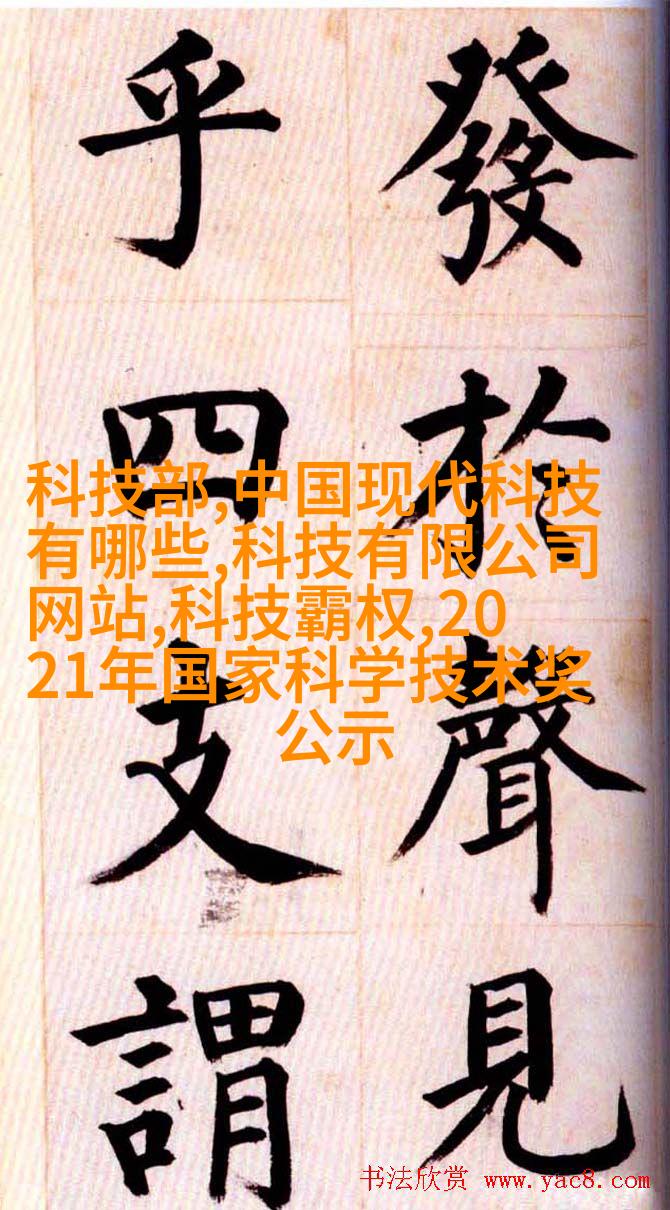 發於聲見
乎四支謂
科技部,中国现代科技
有哪些,科技有限公司
网站,科技霸权,20
21年国家科学技术奖
公示
书法欣赏 www.yac8.com